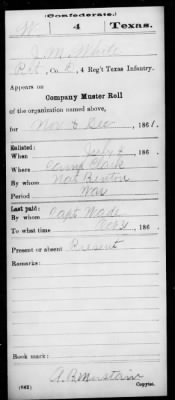 (Confederate.)
W 4 Texas.
J. M. White
Pvt, Co. D, 4 Reg't Texas Infantry.
Appears on
Company Muster Roll
of the organization named above,
for Nov & Dec, 1861.
Enlisted:
When July 4, 186
Where Camp Clark
By whom Nat Benton
Period War
Last paid:
By whom Capt Wade
To what time Oct 31, 186
Present or absent Present
Remarks:
Book mark:
(642) Copyist.